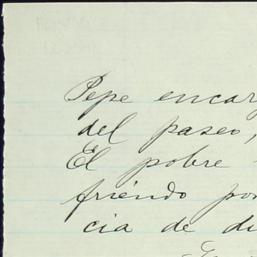 Pepe encar
del paseo,
El pobre
friendo por
cia de di